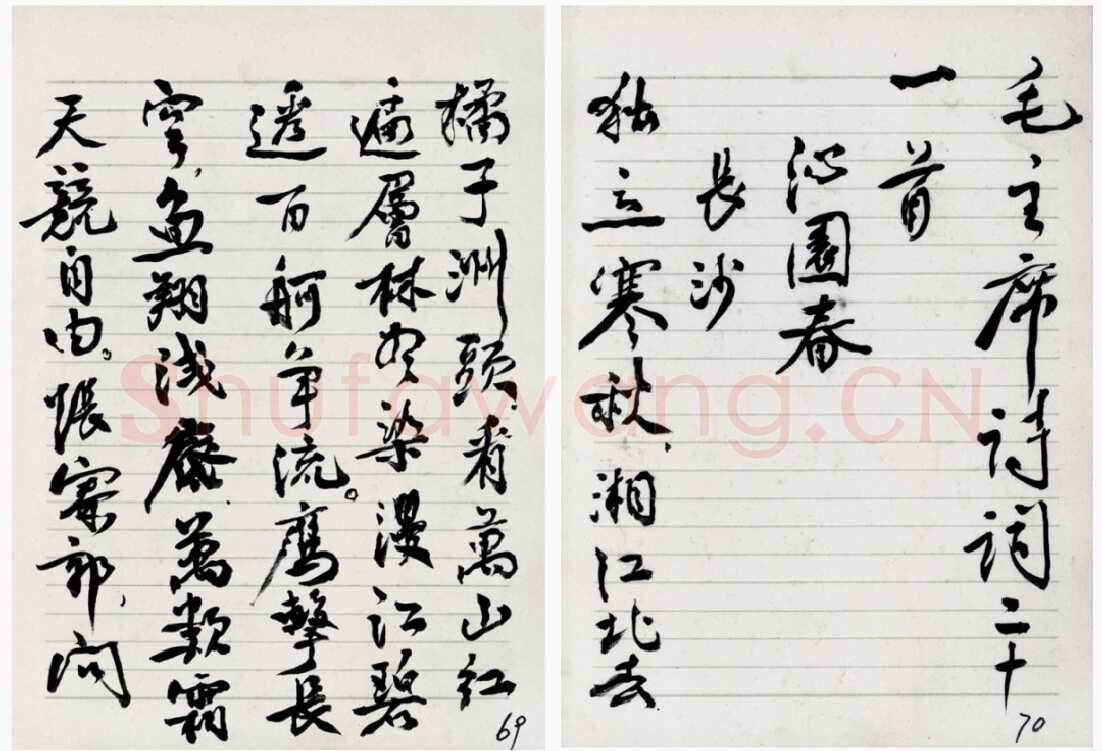 毛主席詩詞二十
一首
沁園春
長沙
独立寒秋、湘江北去
70
橘子洲頭、看萬山红
遍層林尽染漫江碧
透百舸争流。鹰擊長
空、鱼翔浅底、萬類霜
天競自由。悵寥郭、問
69
Shufawang.CN